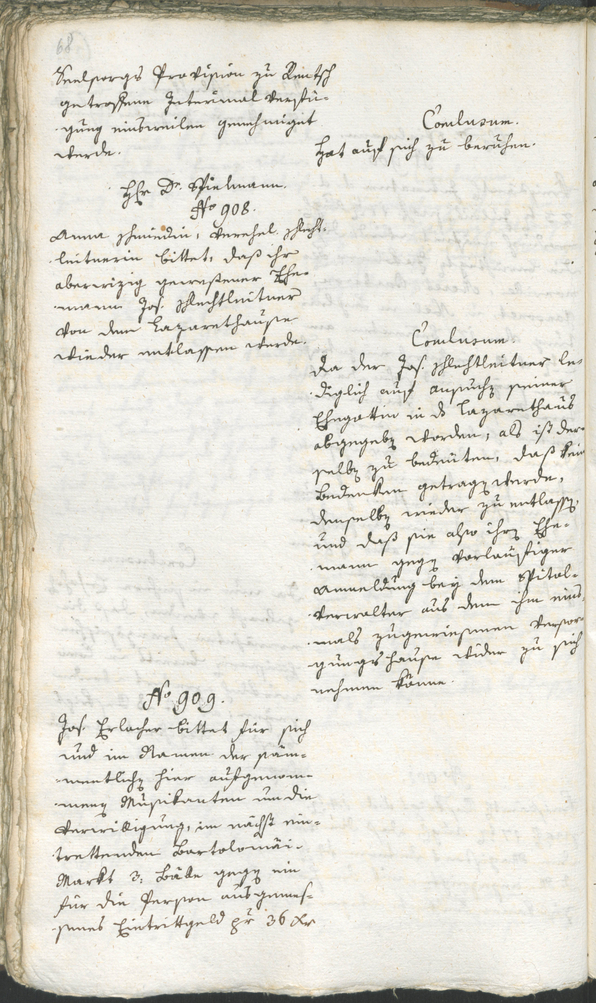 68
Seelsorgs Provision zu Rentsch
getroffene Interimal Verfü-
gung einsweilen genehmiget
werde.
Conclusum.
Hat auf sich zu beruhen.
Hr Dr. Spielmann.
No 908.
Anna Schmiedin, verehel. Schlecht-
leitnerin bittet, daß ihr
aberwizig gewesener Ehe-
mann Jos. Schlechtleitner
von dem Lazarethause
wieder entlassen werde.
Conclusum.
Da der Jos. Schlechtleitner le-
diglich auf ansuchen seiner
Ehegattin in das Lazarethaus
abgegeben worden, als ist der-
selben zu bedeuten, daß kein
Bedenken getragen werde,
denselben wieder zu entlassen,
und daß sie also ihren Ehe-
mann gegen vorläufiger
Anmeldung bey dem Spital-
verwalter aus dem ihm eins-
mals zugewiesenen Versor-
gungshause wider zu sich
nehmen könne.
No 909.
Jos. Erlacher bittet für sich
und im Namen der säm-
mentlichen hier aufgenom-
menen Musikanten um die
Verwilligung, im nächst ein-
trettenden Bartolomäi-
Markt 3. Bäle gegen ein
für die Person ausgemes-
senes Eintrittgeld pr 36 xr